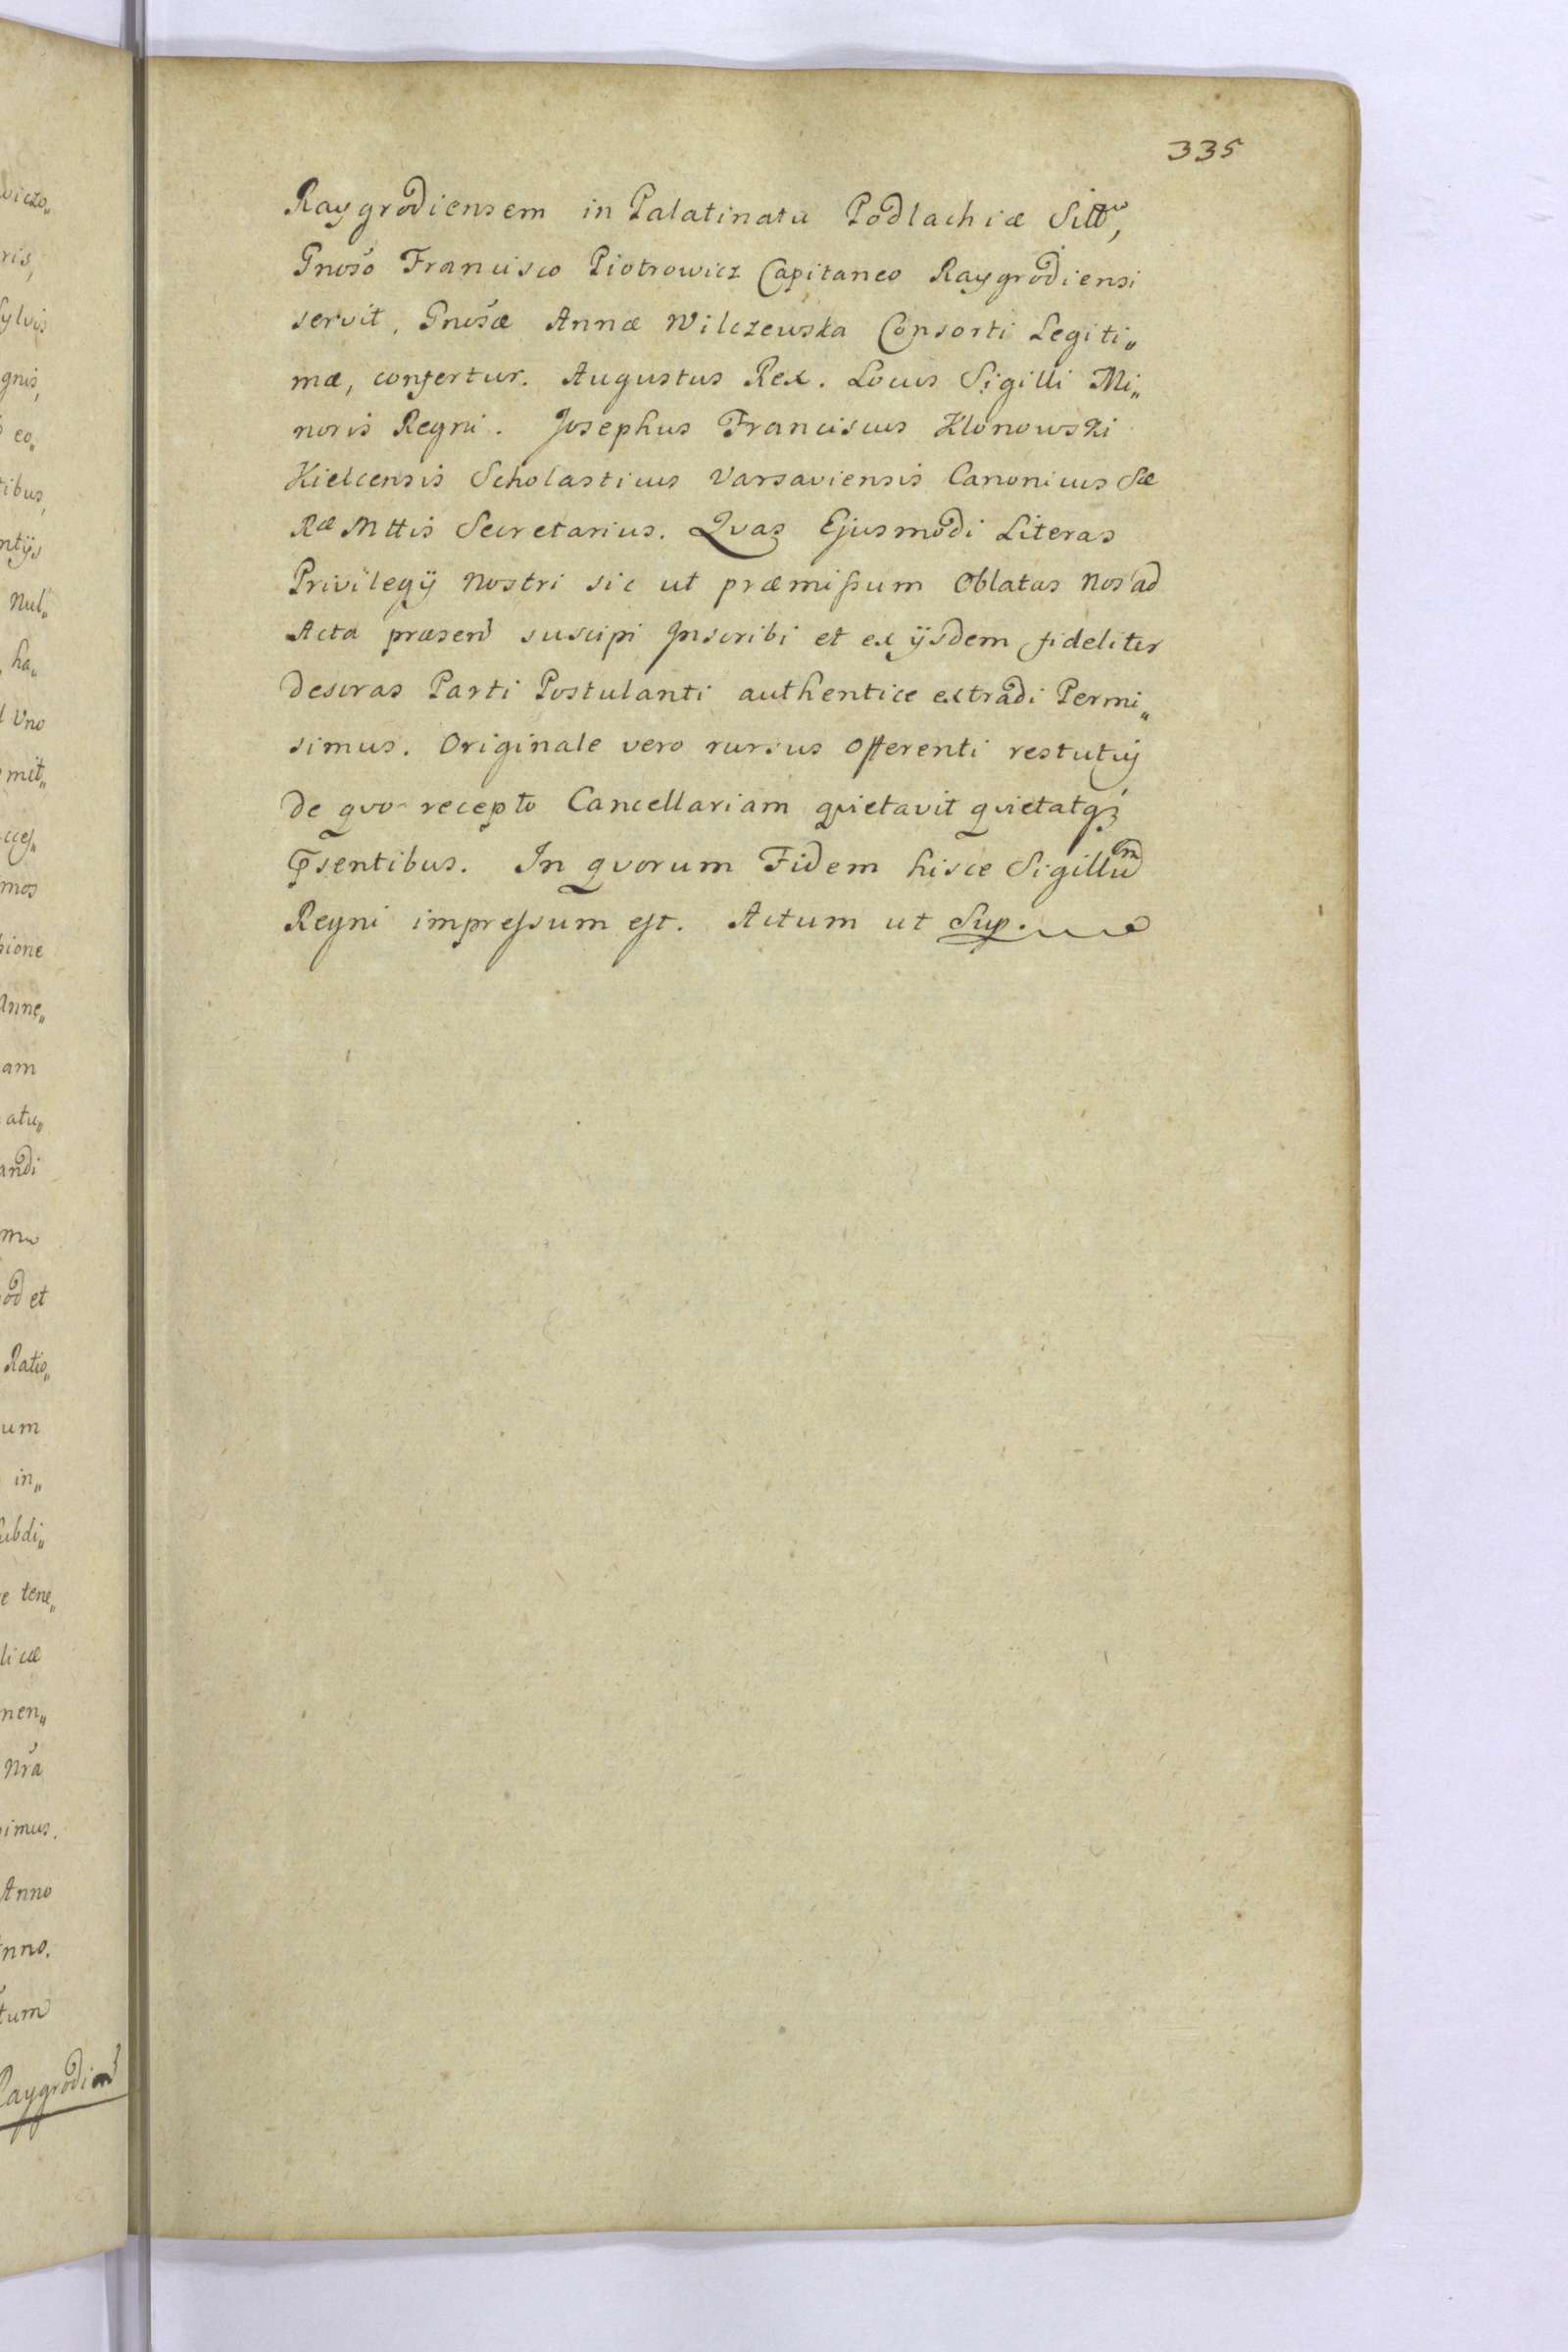 335
Raygrodiensem in Palatinatu Podlachiæ
Gnoso Francisco Piotrowicz Capitaneo Raygrodiensi
servit, Gnosæ Annæ Wilczewska Consorti Legiti„
mæ, confertur. Augustus Rex. Locus Sigilli Mi„
noris Regni. Josephus Franciscus Klonowski
Kielcensis Scholasticus Varsaviensis Canonicus Sæ
Ræ Mttis Secretarius. Qvas Ejusmodi Literas
Privilegÿ Nostri sic ut præmissum Oblatas Nos ad
Acta præsen suscipi Inscribi et ex ÿsdem fideliter
descras Parti Postulanti authentice extradi Permi„
simus. Originale vero rursus Offerenti
de qvo recepto Cancellariam qvietavit qvietatq
psentibus. In qvorum Fidem hisce Sigillum
Regni impressum est. Actum ut Sup.
viczo„
ris,
Sylvis
gnis,
eo„
tibus,
ntÿs
Nul„
ha„
Uno
mit„
cces„
mos
sione
Anne„
am
atu„
andi
od et
Ratio„
um
in„
Subdi„
e tene„
licæ
nen„
Nra
imus.
Anno
nno.
tum
Raygrodien